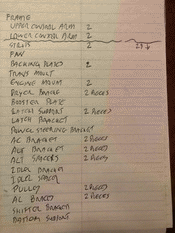 FRAME
UPPER CONTROL ARM 2
LOWER CONTROL ARM 2
STRUTS 2
PAN
BACKING PLATES 2
TRANS MOUNT
ENGINE MOUNT 2
DRYER BRACKET 2 PIECES
BOOSTER PLATE
LATCH SUPPORT 2 PIECES
LATCH BRACKET
POWER STEERING BRACKET
AC BRACKET 2 PIECES
ALT BRACKET 2 PIECES
ALT SPACERS 2
IDLER BRACKET
IDLER SPACER
PULLEY 2 PIECES
AC BRACES 2 PIECES
SHIFTER BRACKET
BOTTOM SUPPORT